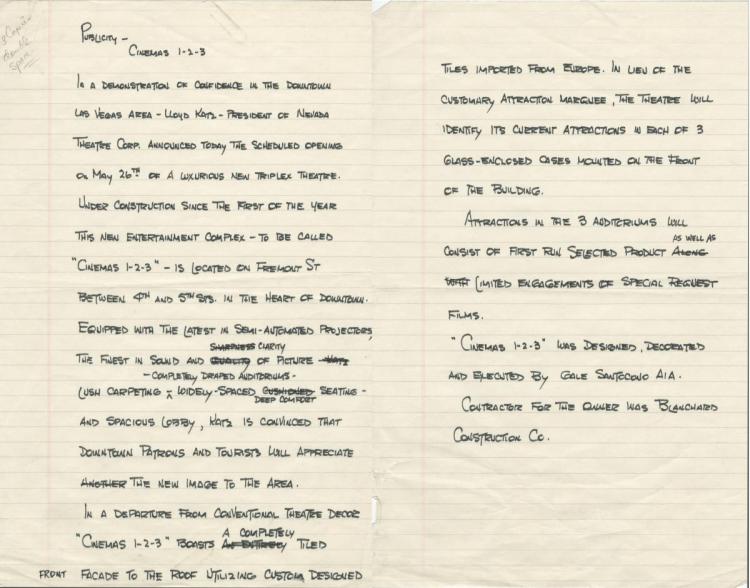 2 Copies
double
space
Publicity –
Cinemas 1-2-3
In a demonstration of confidence in the downtown
Las Vegas area – Lloyd Katz – President of Nevada
Theatre Corp. announced today the scheduled opening
on May 26th of a luxurious new triplex theatre.
Under construction since the first of the year
this new entertainment complex – to be called
"Cinemas 1-2-3" – is located on Fremont St
between 4th and 5th Sts. in the heart of downtown.
Equipped with the latest in semi-automated projectors,
sharpness clarity
the finest in sound and quality of picture Katz
– completely draped auditoriums –
lush carpeting – widely-spaced cushioned seating –
deep comfort
and spacious lobby, Katz is convinced that
downtown patrons and tourists will appreciate
another the new image to the area.
In a departure from conventional theatre decor
a completely
"Cinemas 1-2-3" boasts an entirely tiled
front facade to the roof utilizing custom designed
tiles imported from Europe. In lieu of the
customary attraction marquee, the theatre will
identify its current attractions in each of 3
glass-enclosed cases mounted on the front
of the building.
Attractions in the 3 auditoriums will
as well as
consist of first run selected product along
with limited engagements of special request
films.
"Cinemas 1-2-3" was designed, decorated
and executed by Gale Santocono AIA.
Contractor for the owner was Blanchard
Construction Co.